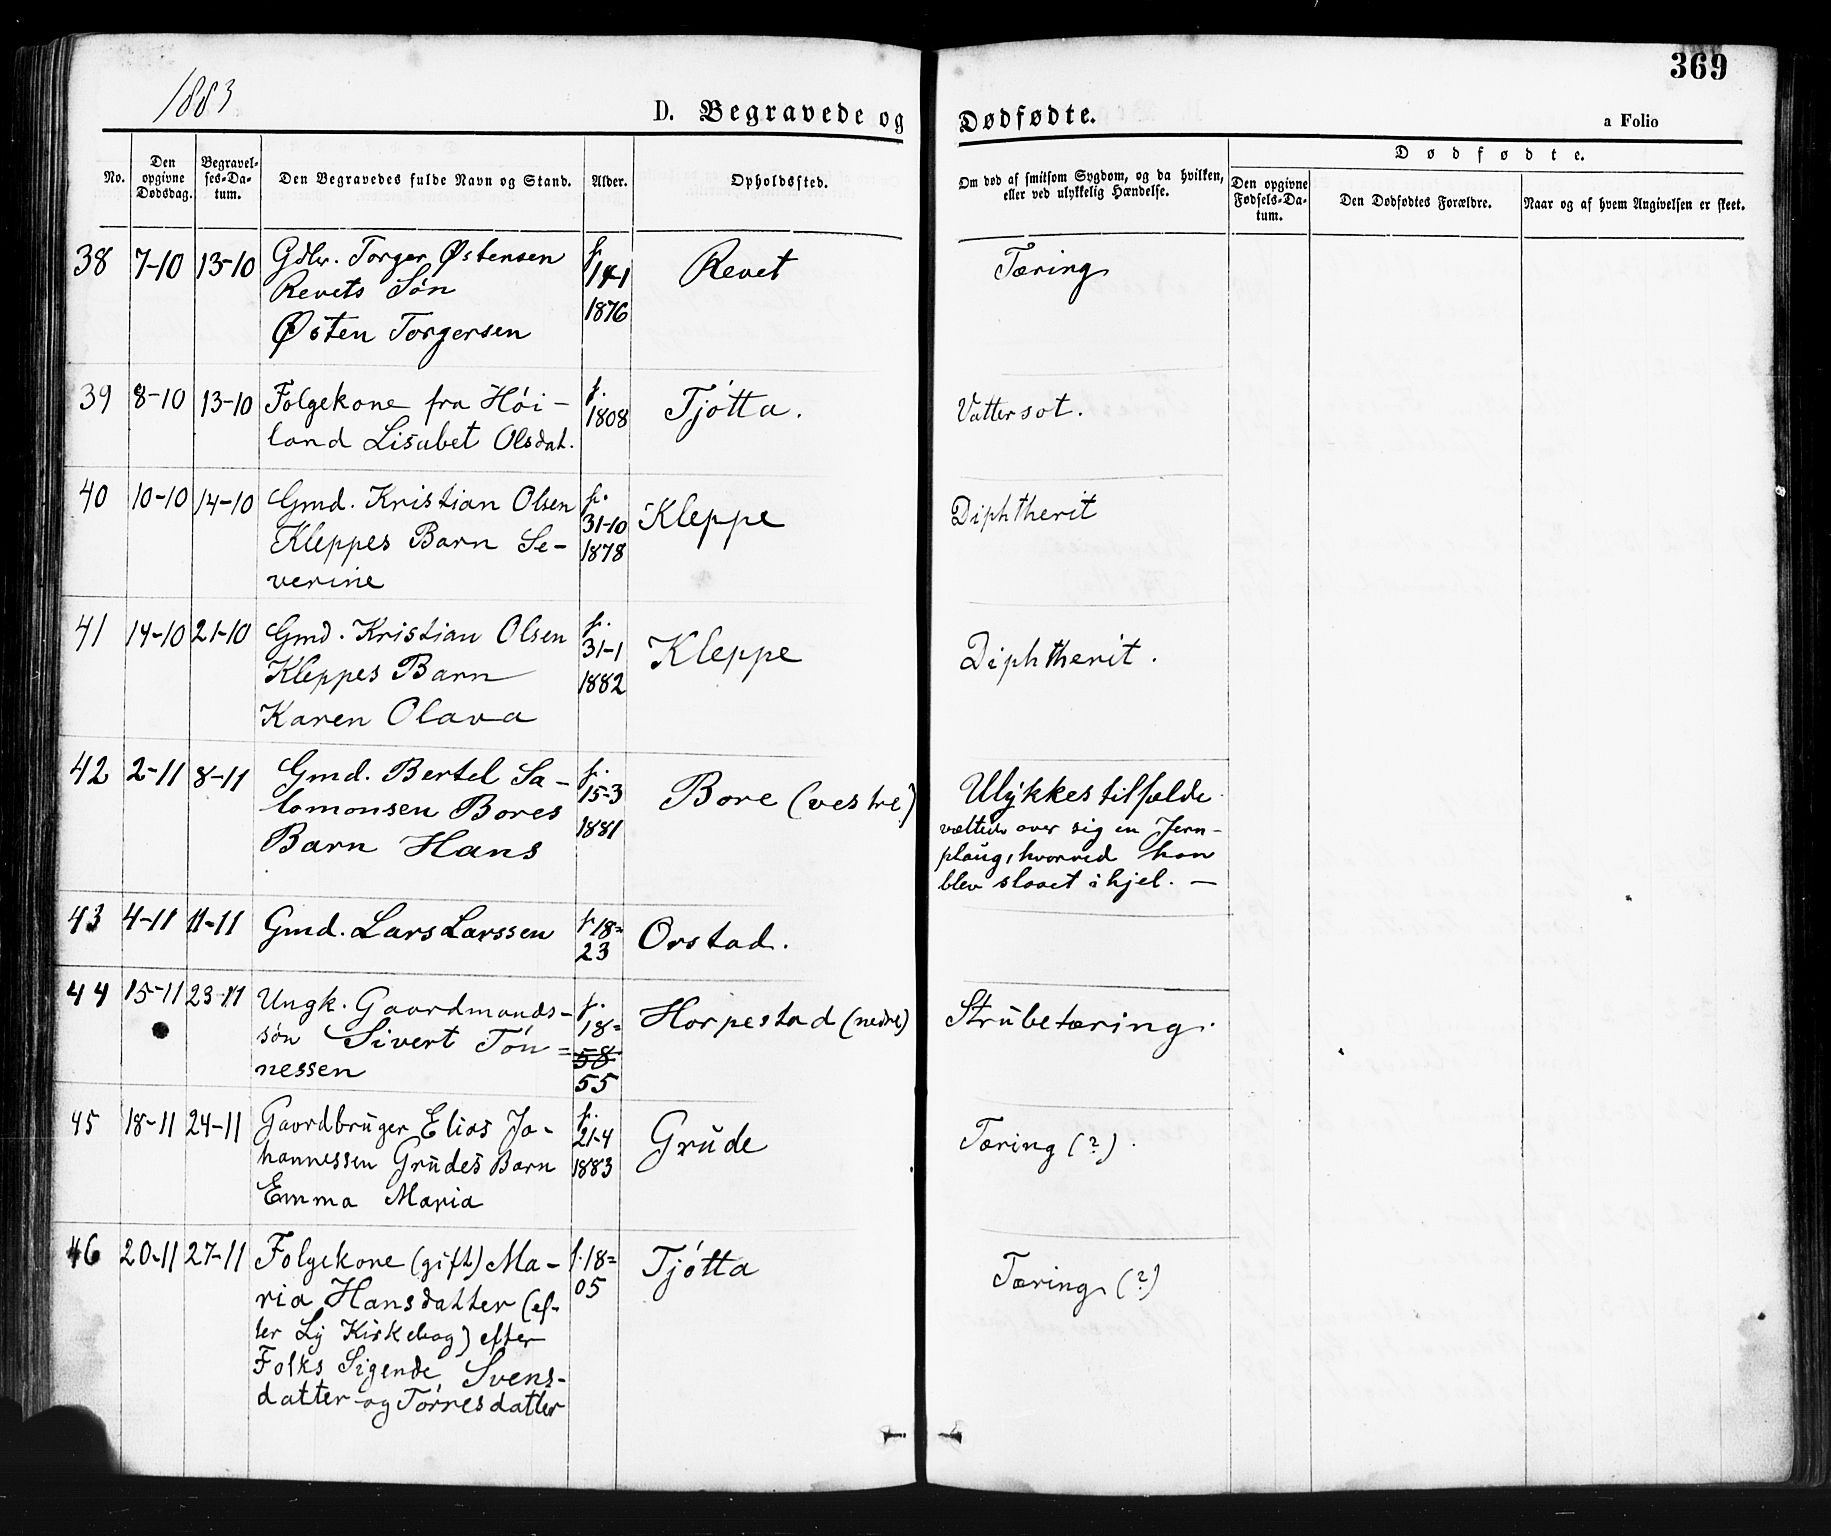 369
1883
D. Begravede og Dødfødte.
a Folio
No.
Den opgivne Dødsdag.
Begravelses-Datum.
Den Begravedes fulde Navn og Stand.
Alder.
Opholdssted.
Om død af smitsom Sygdom, og da hvilken, eller ved ulykkelig Hændelse.
Dødfødte.
Den opgivne Fødsels-Datum.
Den Dødfødtes Forældre.
Naar og af hvem Angivelsen er skeet.
38 7-10 13-10 Gdbr. Torger Østensen f. Revet Tæring
Revets Søn
1876
Østen Torgersen
39 8-10 13-10 Folgekone fra Hói- f. 1808 Tjótta. Vattersot.
land Lisabet Olsdat.
40 10-10 14-10 Gmd. Kristian Olsen f. Kleppe Diphtherit
Kleppes Barn Se- 31-10
verine 1878
41 14-10 21-10 Gmd. Kristian Olsen f. Kleppe Diphtherit.
Kleppes Barn 31-1
Karen Olava 1882
42 2-11 8-11 Gmd. Bertel Sa- f. Bore (vestre) Ulykkestilfælde
lomonsen Bores 15-3 væltede over sig en Jern-
Barn Hans 1881 ploug, hvorved han
blev slaaet ihjel. —
43 4-11 11-11 Gmd. Lars Larssen f 18= Orstad.
23
44 15-11 23-11 Ungk. Gaardmands- f. Horpestad (nedre) Strubetæring.
søn Sivert Tón= 18=
nessen 58
55
45 18-11 24-11 Gaardbruger Elias Jo- f. Grude Tæring (?).
hannessen Grudes Barn 21-4
Emma Maria 1883
46 20-11 27-11 Folgekone (gift) Ma- f. 18= Tjótta Tæring (?)
ria Hansdatter (ef- 05
ter Ly Kirkebog) efter
Folks Sigende Svens-
datter og Tórresdatter